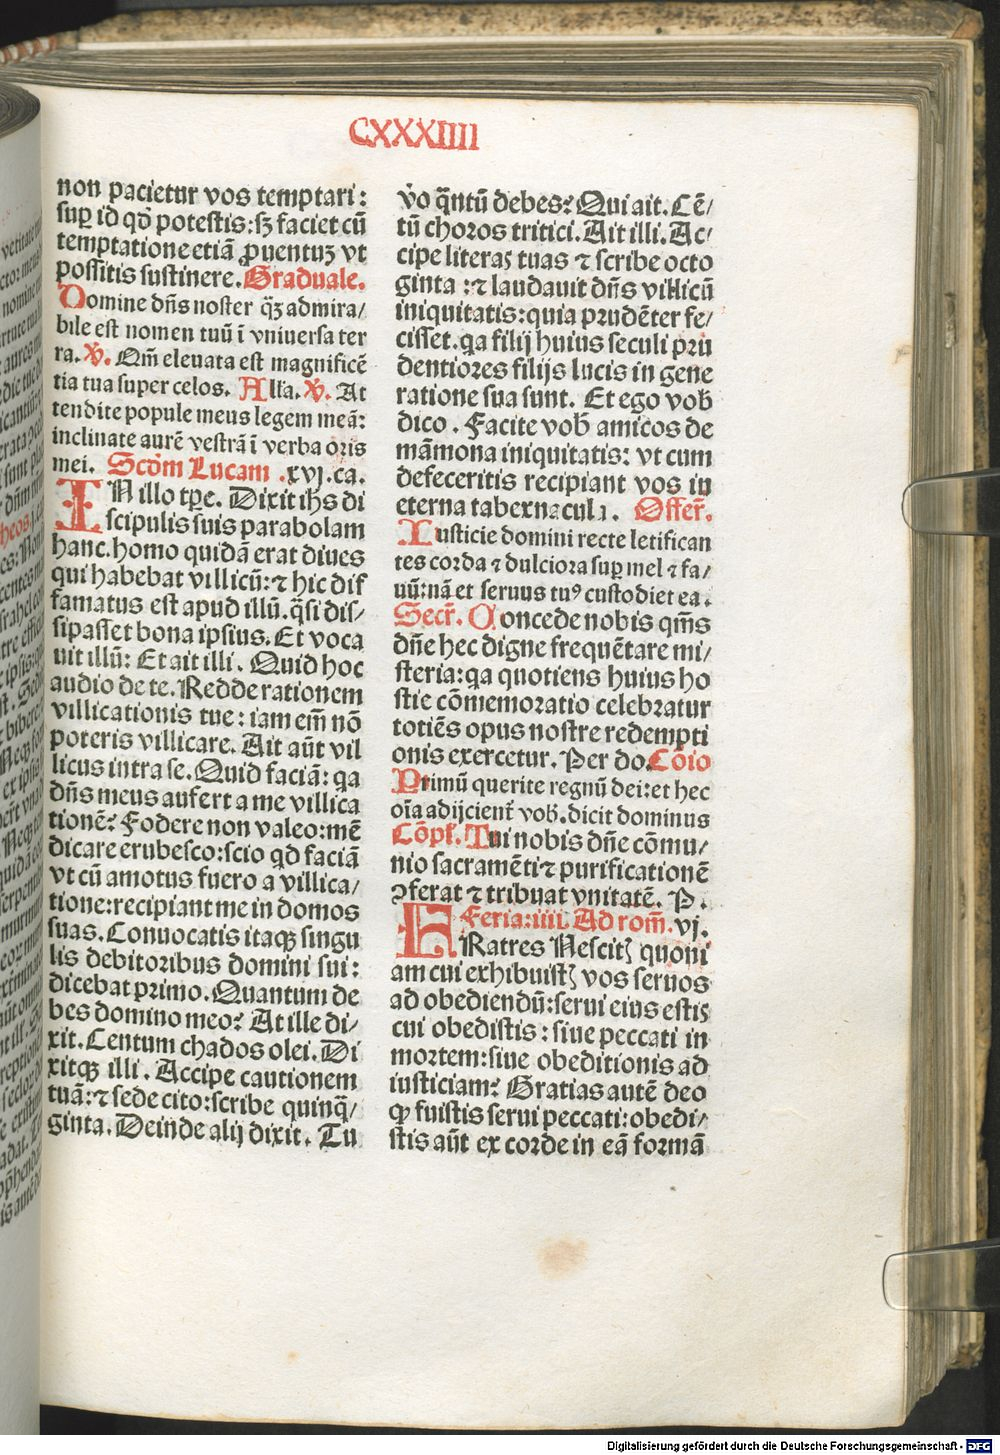 CXXXIIII
non pacietur vos temptari:
suꝑ id qd̄ potestis:sꝫ faciet cū
temptatione etiā ꝓuentuꝫ vt
possitis sustinere. Graduale.
Domine dn̄s noster qͣꝫ admira/
bile est nomen tuū ī vniuersa ter
ra. ℣. Qm̄ eleuata est magnificē
tia tua super celos. Alla. ℣. At
tendite popule meus legem meā:
inclinate aurē vestrā ī verba oris
mei. Scdm̄ Lucam .xvj.ca.
IN illo tꝑe. Dixit ihs di
scipulis suis parabolam
hanc.homo quidā erat diues
qui habebat villicū:⁊ hic dif
famatus est apud illū.qͣsi dis/
sipasset bona ipsius. Et voca
uit illū: Et ait illi. Quid hoc
audio de te. Redde rationem
villicationis tue: iam em̄ nō
poteris villicare. Ait aūt vil
licus intra se. Quid faciā: qa
dn̄s meus aufert a me villica
tionē? Fodere non valeo:mē
dicare erubesco:scio qd faciā
vt cū amotus fuero a villica/
tione:recipiant me in domos
suas. Conuocatis itaqꝫ singu
lis debitoribus domini sui:
dicebat primo. Quantum de
bes domino meo? At ille di/
xit. Centum chados olei. Di
xitqꝫ illi. Accipe cautionem
tuā:⁊ sede cito:scribe quinqͣ/
ginta. Deinde alij dixit. Tu
v̊o qͣntū debes? Qui ait. Cē/
tū choros tritici. Ait illi. Ac/
cipe literas tuas ⁊ scribe octo
ginta :⁊ laudauit dn̄s villicū
iniquitatis:quia prudēter fe/
cisset.qa filij huius seculi pru
dentiores filijs lucis in gene
ratione sua sunt. Et ego vob
dico . Facite vob amicos de
māmona iniquitatis: vt cum
defeceritis recipiant vos in
eterna tabernacula. Offer̄.
Iusticie domini recte letifican
tes corda ⁊ dulciora suꝑ mel ⁊ fa/
uū:nā et seruus tuꝰ custodiet ea.
Secr̄. Concede nobis qm̄s
dn̄e hec digne frequētare mi/
steria:qa quotiens huius ho
stie cōmemoratio celebratur
totiēs opus nostre redempti
onis exercetur. Per do. Cōio
Primū querite regnū dei:et hec
oīa adijcient̄ vob. dicit dominus
Cōpl̄. Tui nobis dn̄e cōmu/
nio sacramēti ⁊ purificationē
ꝯferat ⁊ tribuat vnitatē. P.
Feria:iiii. Ad rom̄. vj.
FRatres Nescitꝭ quoni
am cui exhibuistꝭ vos seruos
ad obediendū:serui eius estis
cui obedistis : siue peccati in
mortem:siue obeditionis ad
iusticiam? Gratias autē deo
qꝙ fuistis serui peccati:obedi/
stis aūt ex corde in eā formā
Digitalisierung gefördert durch die Deutsche Forschungsgemeinschaft - DFG